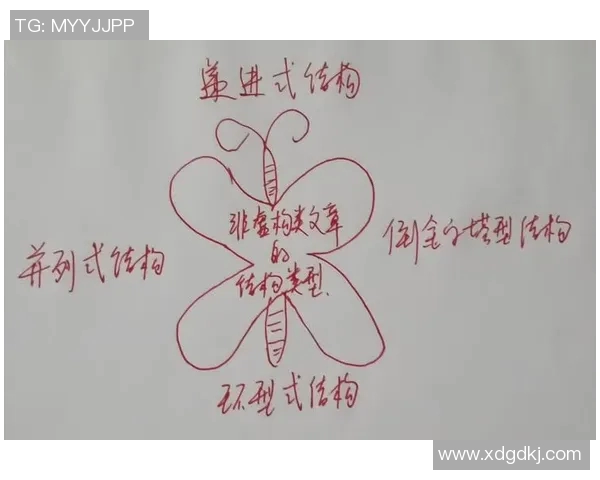 TG: MYYJJPP
递进式结构
非虚构类文章
的
结构类型
并列式结构
倒金字塔型结构
环型式结构
www.xdgdkj.com